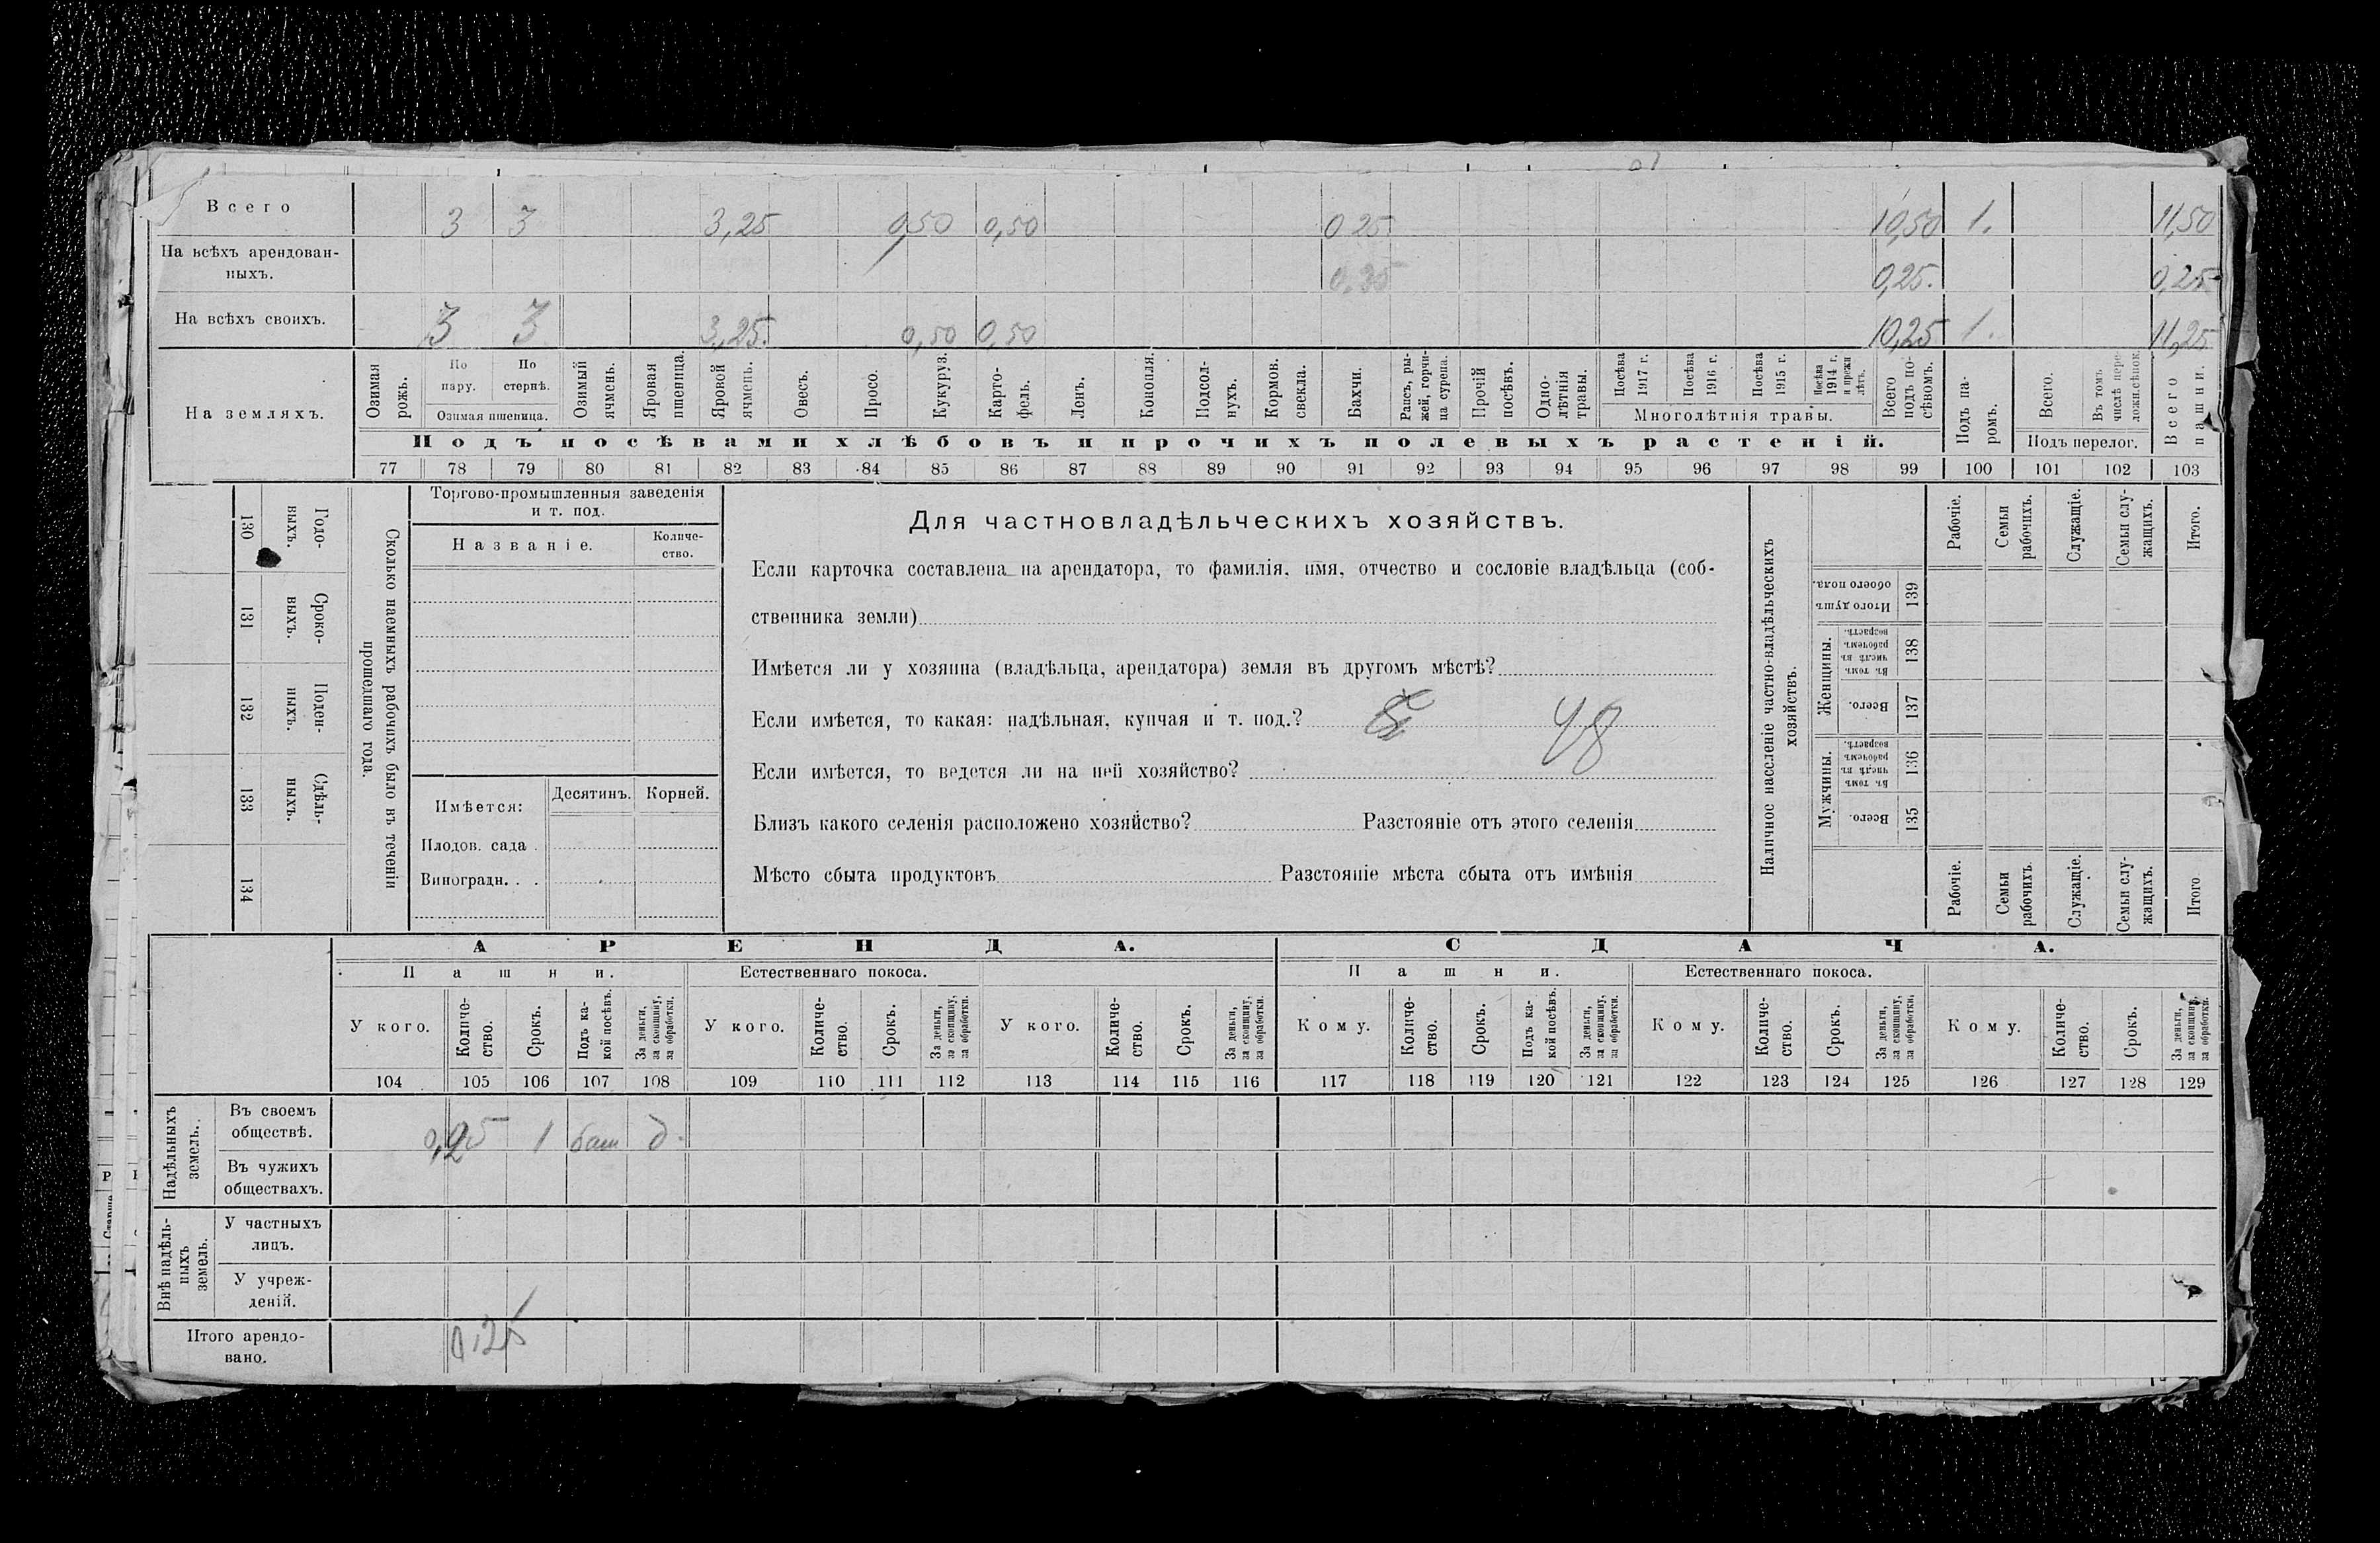 Всего 3 3 3,25 0,50 0,50 0 25 10,50 1. 11,50
На всѣхъ арендован-
ныхъ. 0,25. 0,25
На всѣхъ своихъ. 3 3 3,25. 0,50 0,50 10,25 1. 11,25
На земляхъ.
Озимая рожь.
По пару.
По стернѣ.
Озимая пшеница.
Озимый ячмень.
Яровая пшеница.
Яровой ячмень.
Овесъ.
Просо.
Кукуруз.
Карто-
фель.
Ленъ.
Конопля.
Подсол-
нухъ.
Кормов.
свекла.
Бахчи.
Рапсъ, ры-
жей, горчи-
ца сурепа.
Прочій посѣвъ.
Одно-
лѣтнія травы.
Посѣва 1917 г.
Посѣва 1916 г.
Посѣва 1915 г.
Посѣва 1914 г. и прежн лѣтъ.
Многолѣтнія травы.
Всего подъ по-
сѣвомъ.
Подъ посѣвами хлѣбовъ и прочихъ полевыхъ растеній.
Подъ па-
ромъ.
Всего.
Въ томъ числѣ пере-
ложн.сѣнок.
Подъ перелог.
Всего пашни.
77 78 79 80 81 82 83 84 85 86 87 88 89 90 91 92 93 94 95 96 97 98 99 100 101 102 103
130 Годо-
выхъ.
131 Сроко-
выхъ.
132 Поден-
ныхъ.
133 Сдѣль-
ныхъ.
134
Сколько наемныхъ рабочихъ было въ теченіи
прошедшаго года.
Торгово-промышленныя заведенія
и т. под.
Названіе.
Количе-
ство.
Имѣется: Десятинъ. Корней.
Плодов. сада .
Виноградн. . .
Для частновладѣльческихъ хозяйствъ.
Если карточка составлена на арендатора, то фамилія, имя, отчество и сословіе владѣльца (соб-
ственника земли)
Имѣется ли у хозяина (владѣльца, арендатора) земля въ другомъ мѣстѣ?
Если имѣется, то какая: надѣльная, купчая и т. под.? 48
Если имѣется, то ведется ли на ней хозяйство?
Близъ какого селенія расположено хозяйство? Разстояніе отъ этого селенія
Мѣсто сбыта продуктовъ Разстояніе мѣста сбыта отъ имѣнія
Наличное населеніе частно-владѣльческихъ
хозяйствъ.
Рабочіе.
Семьи рабочихъ.
Служащіе.
Семьи слу-
жащихъ.
Итого.
Итого душъ обоего пола. 139
Женщины.
Въ томъ числѣ въ рабочемъ возрастѣ. 138
Всего. 137
Мужчины.
Въ томъ числѣ въ рабочемъ возрастѣ. 136
Всего. 135
Рабочіе.
Семьи рабочихъ.
Служащіе.
Семьи слу-
жащихъ.
Итого
АРЕНДА. СДАЧА.
Пашни. Естественнаго покоса. Пашни. Естественнаго покоса.
У кого.
Количе-
ство.
Срокъ.
Подъ ка-
кой посѣвъ.
За деньги, за скопщину, за обработки.
У кого.
Количе-
ство.
Срокъ.
За деньги, за скопщину, за обработки.
У кого.
Количе-
ство.
Срокъ.
За деньги, за скопщину, за обработки.
Кому.
Количе-
ство.
Срокъ.
Подъ ка-
кой посѣвъ.
За деньги, за скопщину, за обработки.
Кому.
Количе-
ство.
Срокъ.
За деньги, за скопщину, за обработки.
Кому.
Количе-
ство.
Срокъ.
За деньги, за скопщину, за обработки.
104 105 106 107 108 109 110 111 112 113 114 115 116 117 118 119 120 121 122 123 124 125 126 127 128 129
Надѣльныхъ
земель.
Въ своемъ
обществѣ. 0,25 1 баш д.
Въ чужихъ
обществахъ.
Внѣ надѣль-
ныхъ
земель.
У частныхъ
лицъ.
У учреж-
деній.
Итого арендо-
вано. 0,25